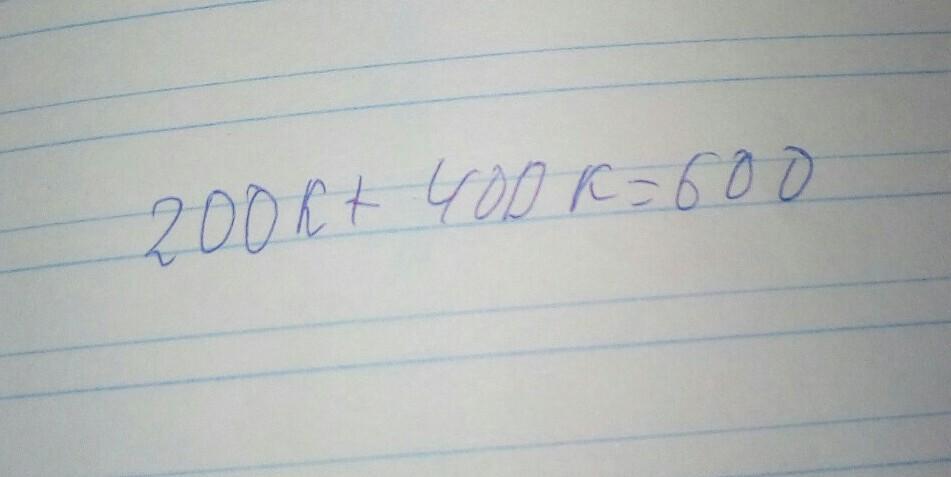 200к+ 400 к=600